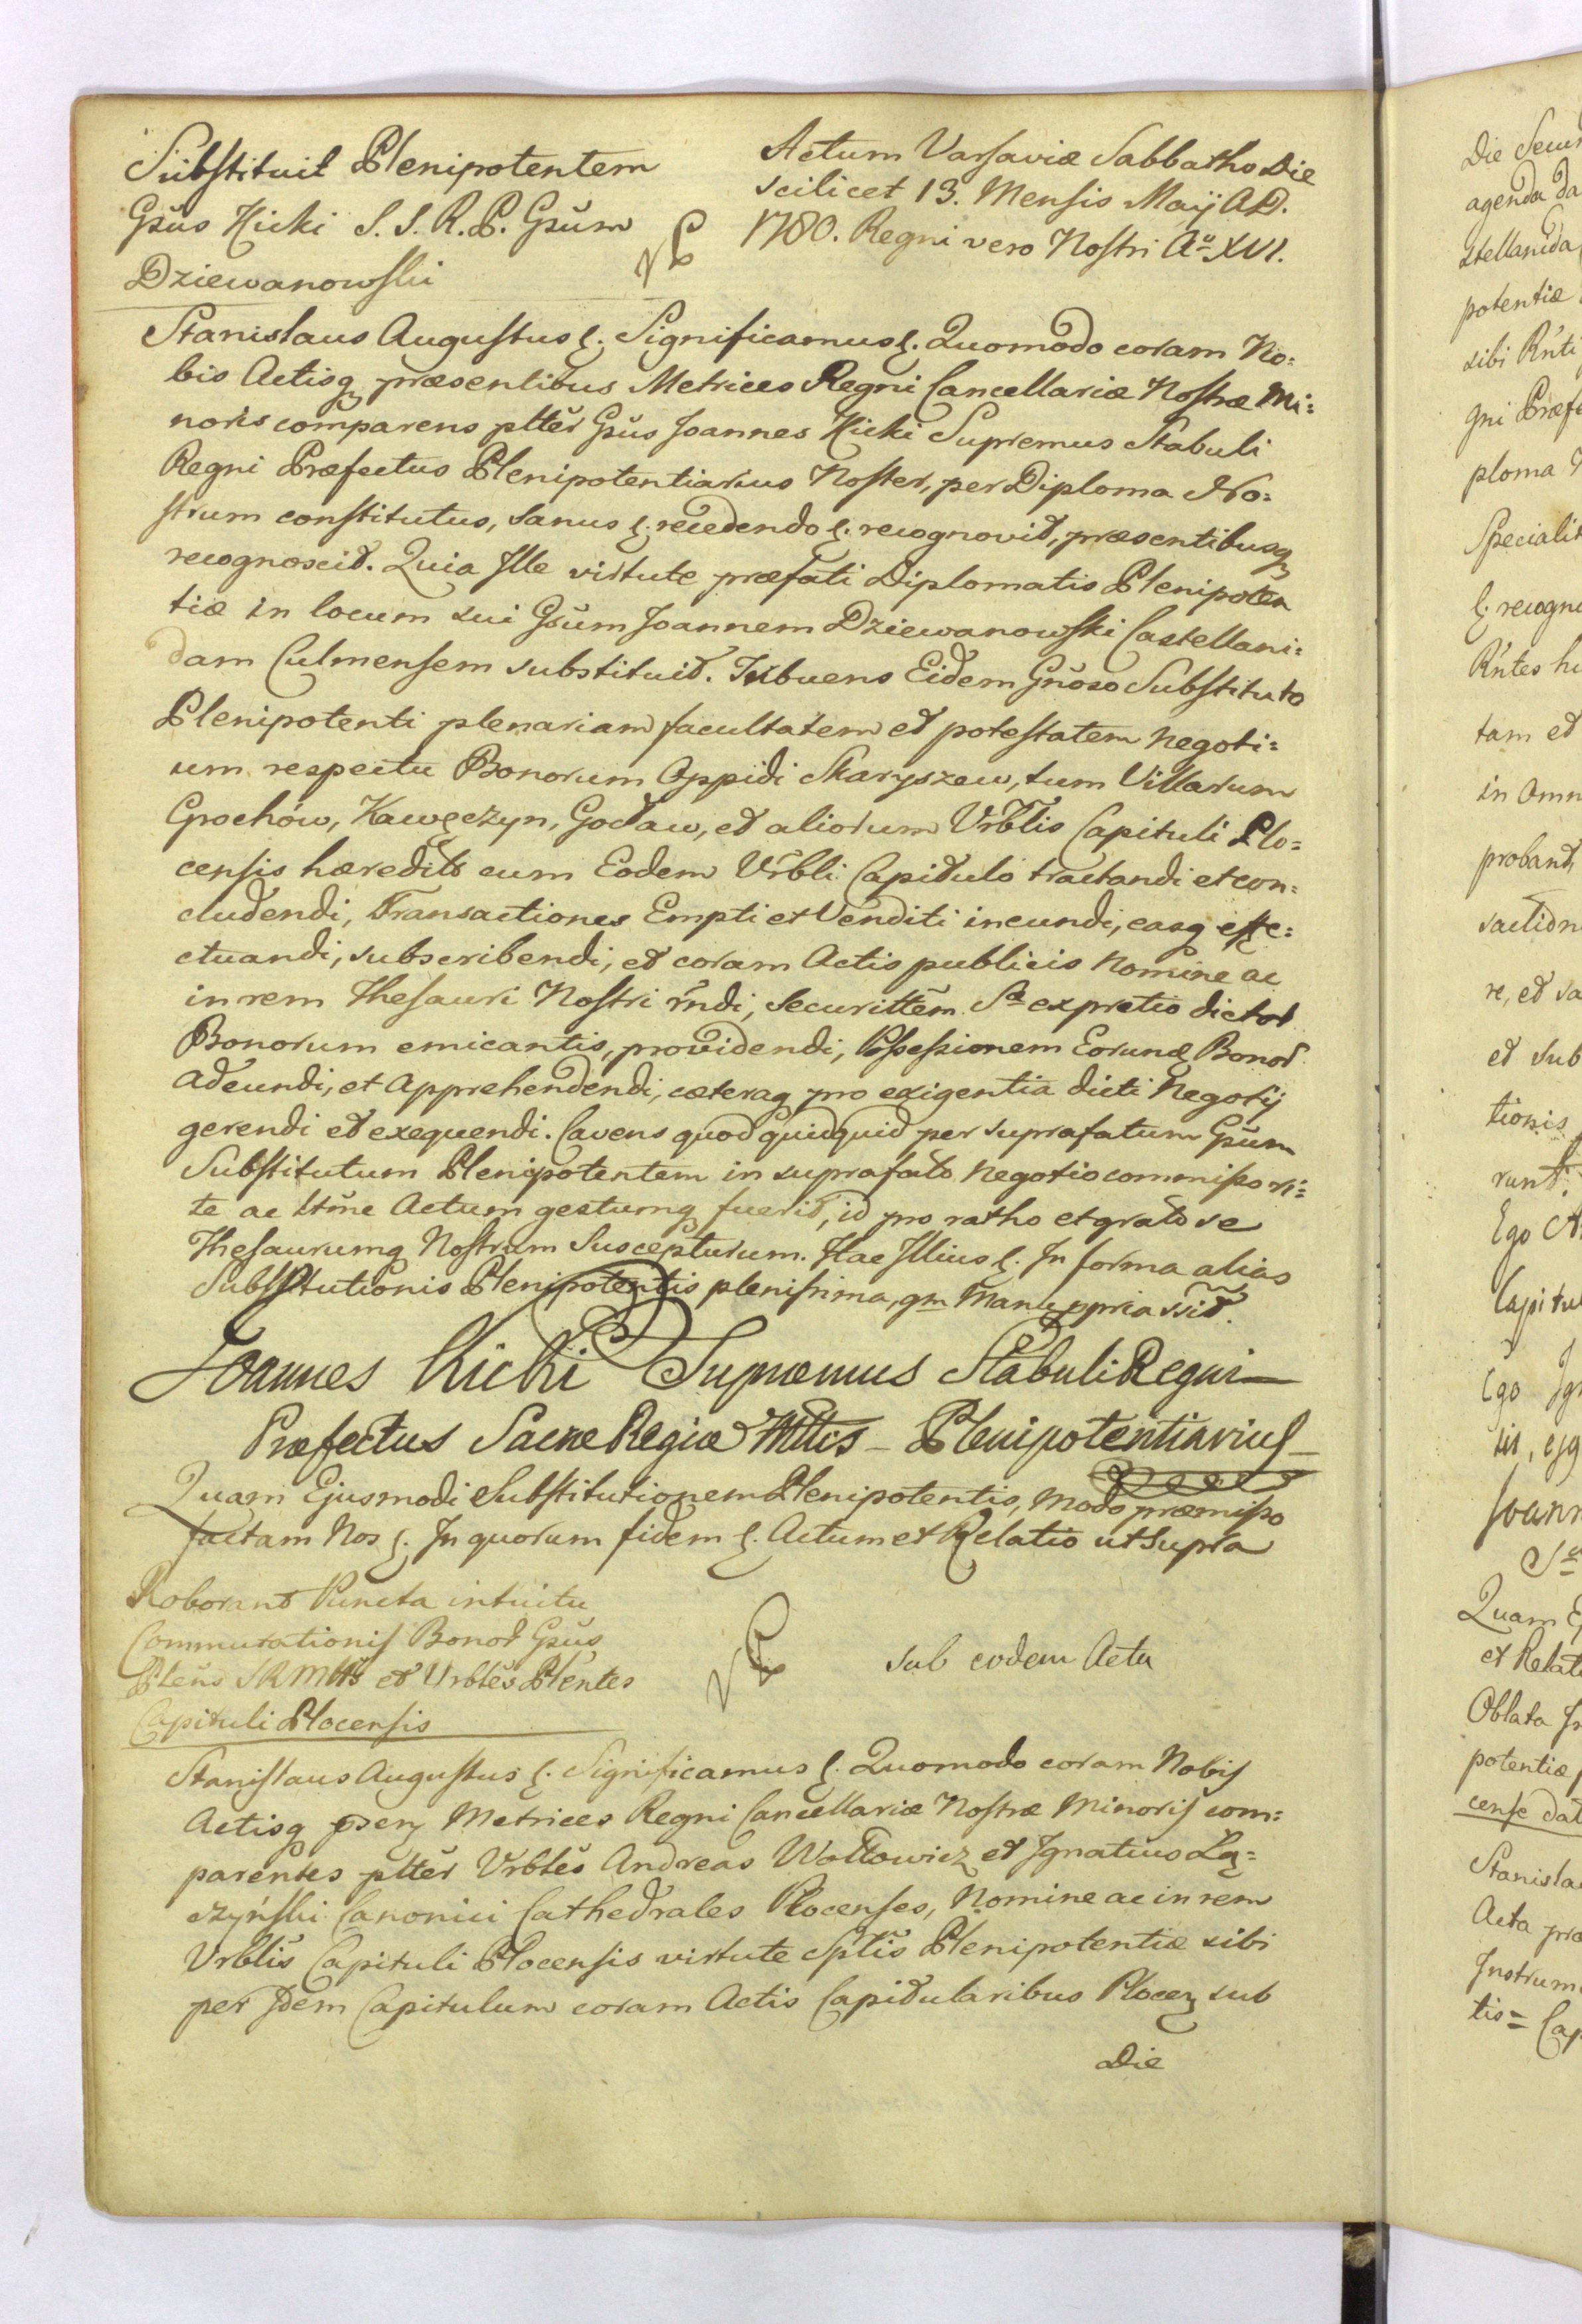 Substituit Plenipotentem
Gsus Kicki S. S. R. P. Gsum
Dziewanowski
Actum Varsaviæ Sabbatho Die
scilicet 13. Mensis Maij A.D.
1780. Regni vero Nostri Aº XVI.
Stanislaus Augustus &. Significamus &. Quomodo coram No:
bis Actisq præsentibus Metrices Regni Cancellariæ Nostræ Mi:
noris comparens pltter Gsus Joannes Kicki Supremus Stabuli
Regni Præfectus Plenipotentiarius Noster, per Diploma No:
strum constitutus, sanus &. recedendo &. recognovit, præsentibusq
recognoscit. Quia Ille virtute præfati Diplomatis Plenipoten
tiæ in locum sui Gsum Joannem Dziewanowski Castellani:
dam Culmensem substituit. Tribuens Eidem Gnoso Substituto
Plenipotenti plenariam facultatem et potestatem negoti:
um respectu Bonorum Oppidi Skaryszew, tum Villarum
Grochów, Kawęczyn, Gocław, et aliorum Vrblis Capituli Plo:
censis hæredits cum Eodem Vrbli Capitulo tractandi et con:
cludendi, Transactiones Empti et Venditi ineundi, easq effe:
ctuandi, subscribendi, et coram Actis publicis Nomine ac
in rem Thesauri Nostri rndi, securittem Sæ ex pretio dictor
Bonorum emicantis, providendi, Possessionem Eorund Bonor
adeundi, et apprehendendi, cæteraq pro exigentia dicti Negotij
gerendi et exequendi. Cavens quod quidquid per suprafatum Gsum
Substitutum Plenipotentem in suprafato negotio commisso ri:
te ac ltme Actum gestumq fuerit, id pro ratho et grato se
Thesaurumq Nostrum Suscepturum. Hac Illius &. In forma alias
Substitutionis Plenipotentis plenissima, qm Manu ppria ssit.
Joannes Kicki Supræmus Stabuli Regni
Præfectus Sacræ Regiæ Mttis - Plenipotentiarius
Quam Ejusmodi Substitutionem Plenipotentis, modo præmisso
factam Nos &. In quorum fidem &. Actum et Relatio ut supra
Roborant Puncta intuitu
Commutationis Bonor Gsus
Plens SRMttis et Vrbles Plentes
Capituli Plocensis
sub eodem Actu
Stanislaus Augustus &. Significamus &. Quomodo coram Nobis
Actisq psen Metrices Regni Cancellariæ Nostræ Minoris com:
parentes pltter Vrbles Andreas Wołłowicz et Ignatius Lą:
czyński Canonici Cathedrales Plocenses, Nomine ac in rem
Vrblis Capituli Plocensis virtute Sptlis Plenipotentiæ sibi
per Idem Capitulum coram Actis Capitularibus Plocen sub
Die